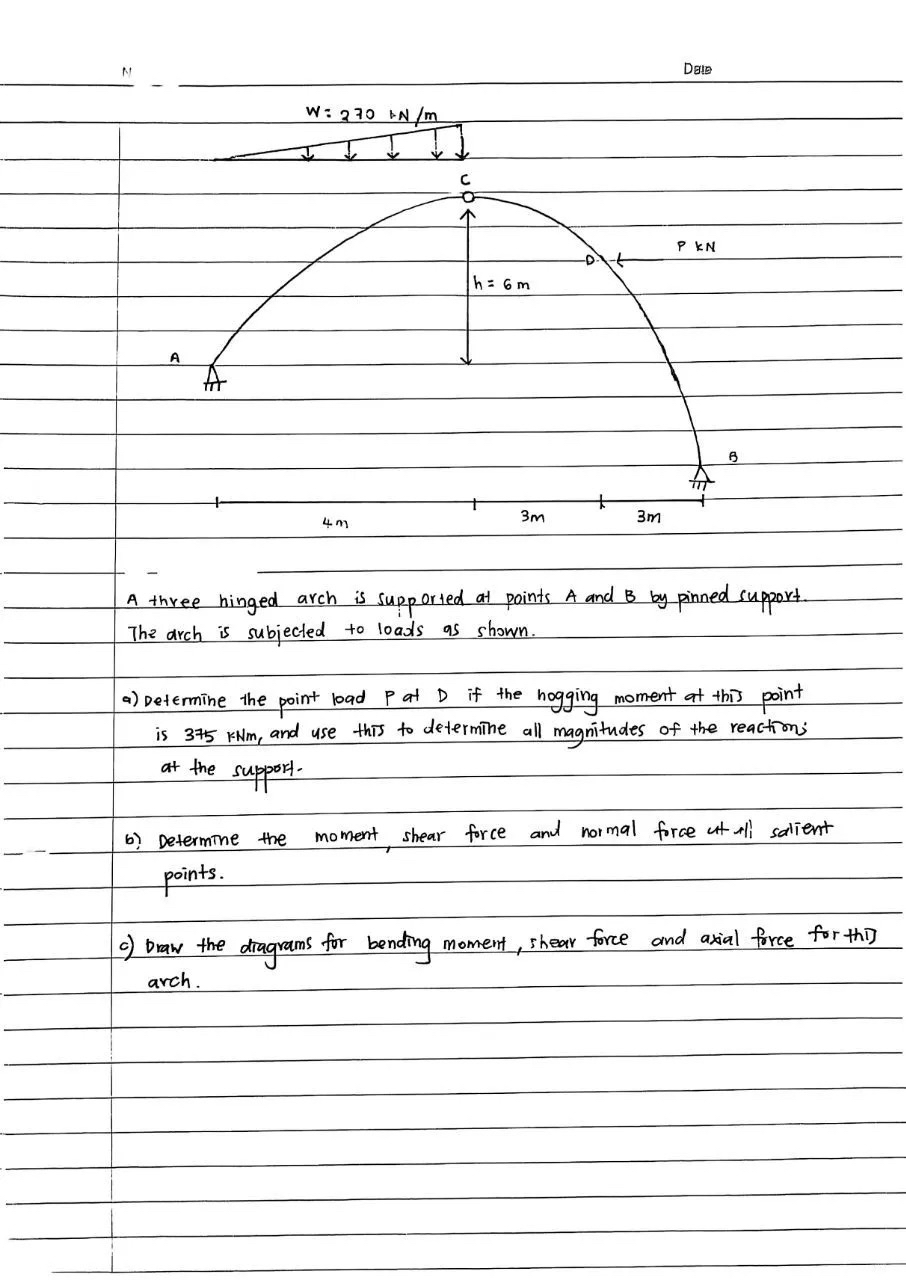 N
Date
W = 270 kN/m
C
P kN
D
h = 6 m
A
B
4 m
3m
3m
A three hinged arch is supported at points A and B by pinned support.
The arch is subjected to loads as shown.
a) Determine the point load P at D if the hogging moment at this point
is 375 kNm, and use this to determine all magnitudes of the reactions
at the support.
b) Determine the moment, shear force and normal force at all salient
points.
c) Draw the diagrams for bending moment, shear force and axial force for this
arch.